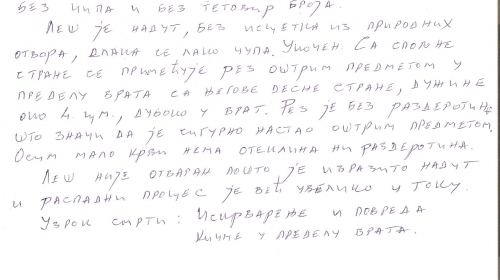 БЕЗ ЧИПА И БЕЗ ТЕТОВИР БРОЈА.
ЛЕШ ЈЕ НАДУТ, БЕЗ ИСЦЕТКА ИЗ ПРИРОДНИХ
ОТВОРА, ДЛАКА СЕ ЛАКО ЧУПА. УКОЧЕН. СА СПОЉНЕ
СТРАНЕ СЕ ПРИМЕЋУЈЕ РЕЗ ОШТРИМ ПРЕДМЕТОМ У
ПРЕДЕЛУ ВРАТА СА ЊЕГОВЕ ДЕСНЕ СТРАНЕ, ДУЖИНЕ
ОКО 4. ЦМ., ДУБОКО У ВРАТ. РЕЗ ЈЕ БЕЗ РАЗДЕРОТИНЕ
ШТО ЗНАЧИ ДА ЈЕ СИГУРНО НАСТАО ОШТРИМ ПРЕДМЕТОМ.
ОСИМ МАЛО КРВИ НЕМА ОТЕКЛИНА НИ РАЗДЕРОТИНА.
ЛЕШ НИЈЕ ОТВАРАН ПОШТО ЈЕ ИЗРАЗИТО НАДУТ
И РАСПАДНИ ПРОЦЕС ЈЕ ВЕЋ УВЕЛИКО У ТОКУ.
УЗРОК СМРТИ: ИСКРВАРЕЊЕ И ПОВРЕДА
КИЧМЕ У ПРЕДЕЛУ ВРАТА.